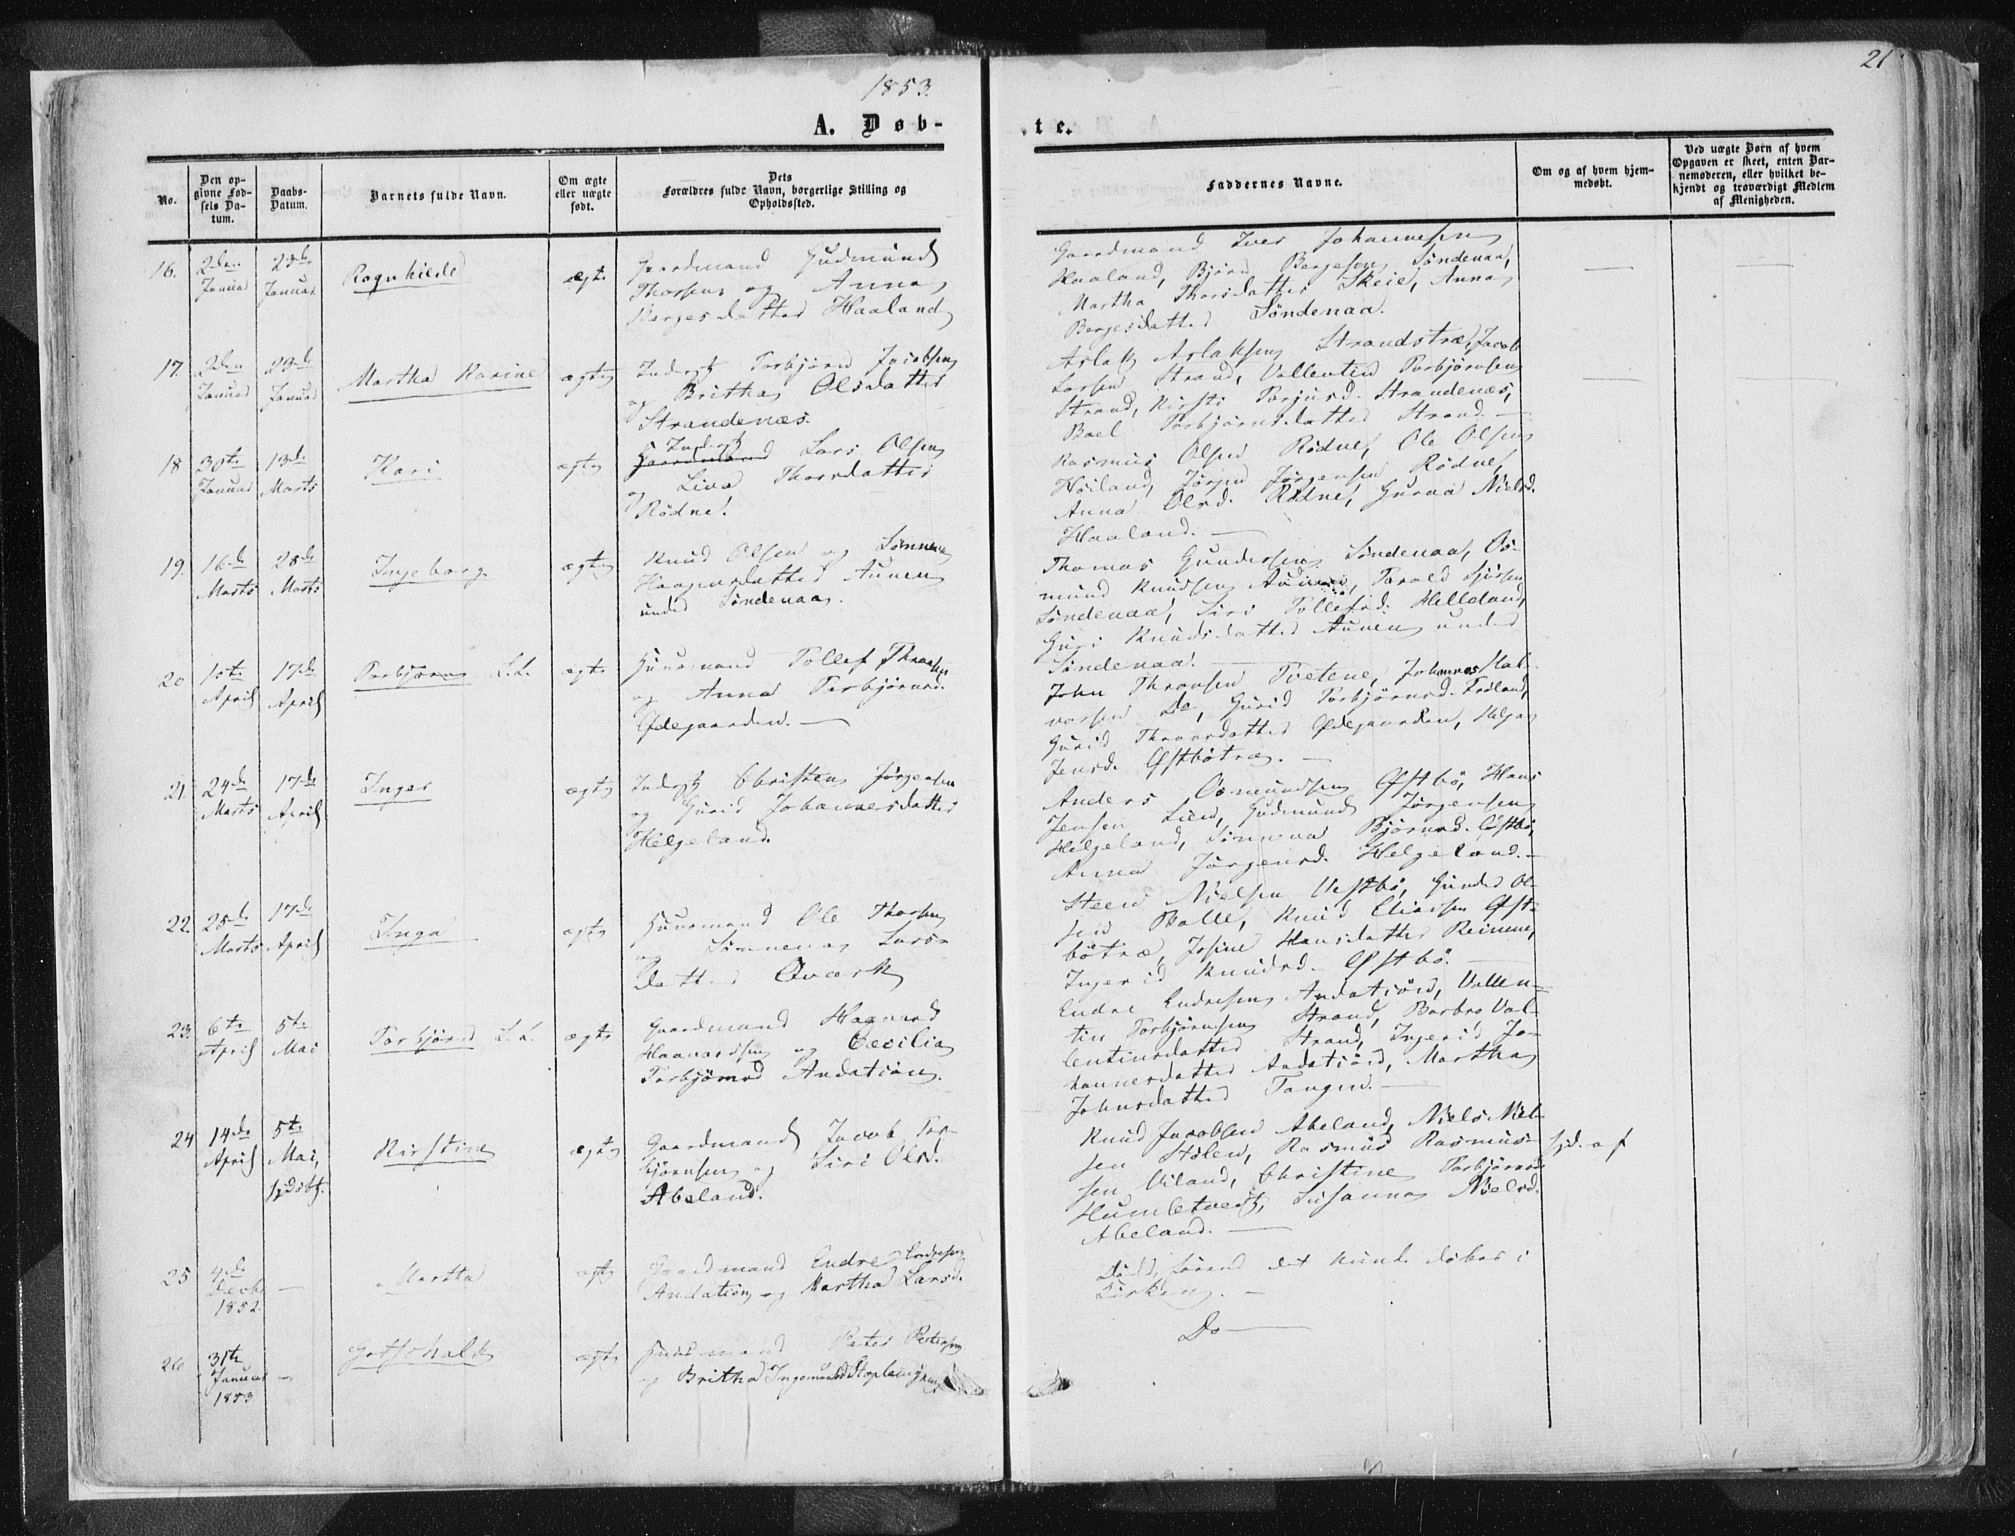 1853.
21
A. Døb-
te.
No.
Den op-
givne Fød-
sels Da-
tum.
Daabs-
Datum.
Barnets fulde Navn.
Om ægte
eller uægte
født.
Dets
Forældres fulde Navn, borgerlige Stilling og
Opholdssted.
Faddernes Navne.
Om og af hvem hjem-
medøbt.
Ved uægte Børn af hvem
Opgaven er skeet, enten Bar-
nemoderen, eller hvilket be-
kjendt og troværdigt Medlem
af Menigheden.
16.
2den
Januar
23de
Januar
Ragnhilde
ægte
Gaardmand Gudmund
Thorsen og Anna
Bergesdatter Haaland
Gaardmand Iver Johannesen
Haaland, Bjørn Bergesen Søndenaa,
Martha Thorsdatter Skeie, Anna
Bergesdatter Søndenaa.
17.
2den
Januar
23de
Januar
Martha Karine
ægte
Inderst Torbjørn Jacobsen
og Britha Olsdatter
Strandenæs.
Aslak Aslaksen Strandstræ, Jacob
Larsen Strand, Vallentin Torbjørnsen
Strand, Kirsti Torjusd. Strandenæs,
Boel Torbjørnsdatter Strand.
18
30te
Januar
13de
Marts
Kari
ægte
Inderst
Gaardmand Lars Olsen
og Liva Thorsdatter
Rødne.
Rasmus Olsen Rødne, Ole Olsen
Høiland, Jørgen Jørgensen Rødne,
Anna Olsd. Rødne, Gurva Nielsd.
Haaland.
19.
16de
Marts
28de
Marts
Ingeborg
ægte
Knud Olsen og Sønneva
Haagensdatter Aunen
under Søndenaa.
Thomas Gundersen Søndenaa, Os-
mund Knudsen Aunen, Torald Sjursen
Søndenaa, Siri Tollefsd. Helleland,
Guri Knudsdatter Aunen under
Søndenaa.
20
1ste
April
17de
April
Torbjørn L.L.
ægte
Huusmand Tollef Thraasen
og Anna Torbjørnsd.
Ødegaarden.
John Thraasen Tvetene, Johannes Hal-
vorsen Do, Gurid Torbjørnsd. Frøland,
Gurid Thraasdatter Ødegaarden, Helga
Jensd. Østbøtræ.
21.
24de
Marts
17de
April
Inger
ægte
Inderst Christen Jørgensen
og Gurid Johannesdatter
Helgeland.
Anders Osmundsen Østbø, Hans
Jensen Lien, Gudmund Jørgensen
Helgeland, Sønneva Bjørnsd. Østbø,
Anna Jørgensd. Helgeland.
22.
25de
Marts
17de
April
Inga
ægte
Huusmand Ole Thorsen
og Sønneva Lars-
datter Qværk
Steen Nielsen Vestbø, Gunder Ol-
sen Bolle, Knud Eliasen Øst-
bøtræ, Josine Hansdatter Reinene,
Ingerid Knudsd. Østbø.
23.
6te
April
5te
Mai
Torbjørn L.L.
ægte
Gaardmand Haavard
Haavardsen og Cecilia
Torbjørnsd Andatiøn.
Endre Endresen Andatiøn, Vallen-
tin Torbjørnsen Strand, Barbro Val-
lentinsdatter Strand, Ingerid Jo-
hannesdatter Andatiøn, Martha
Johnsdatter Tangen.
24
14de
April
5te
Mai,
hjdøbt.
Kirstine
ægte
Gaardmand Jacob Tor-
bjørnsen og Siri Olsd.
Abeland.
Knud Jacobsen Abeland, Niels Niel-
sen Stølen, Rasmus Rasmus-
sen Viland, Christine Torbjørnsd.
Humletvedt, Susanna Nielsd.
Abeland.
hjd. af
25
4de
Decbr
1852.
Martha
ægte
Gaardmand Endre Endresen
Andatiøn og Martha Larsd.
Død, førend det kunde døbes i
Kirken.
26
31te
Januar
1853
Gotschalk
ægte
Huusmand Peter Pedersen
og Britha Ingemundsd
Do